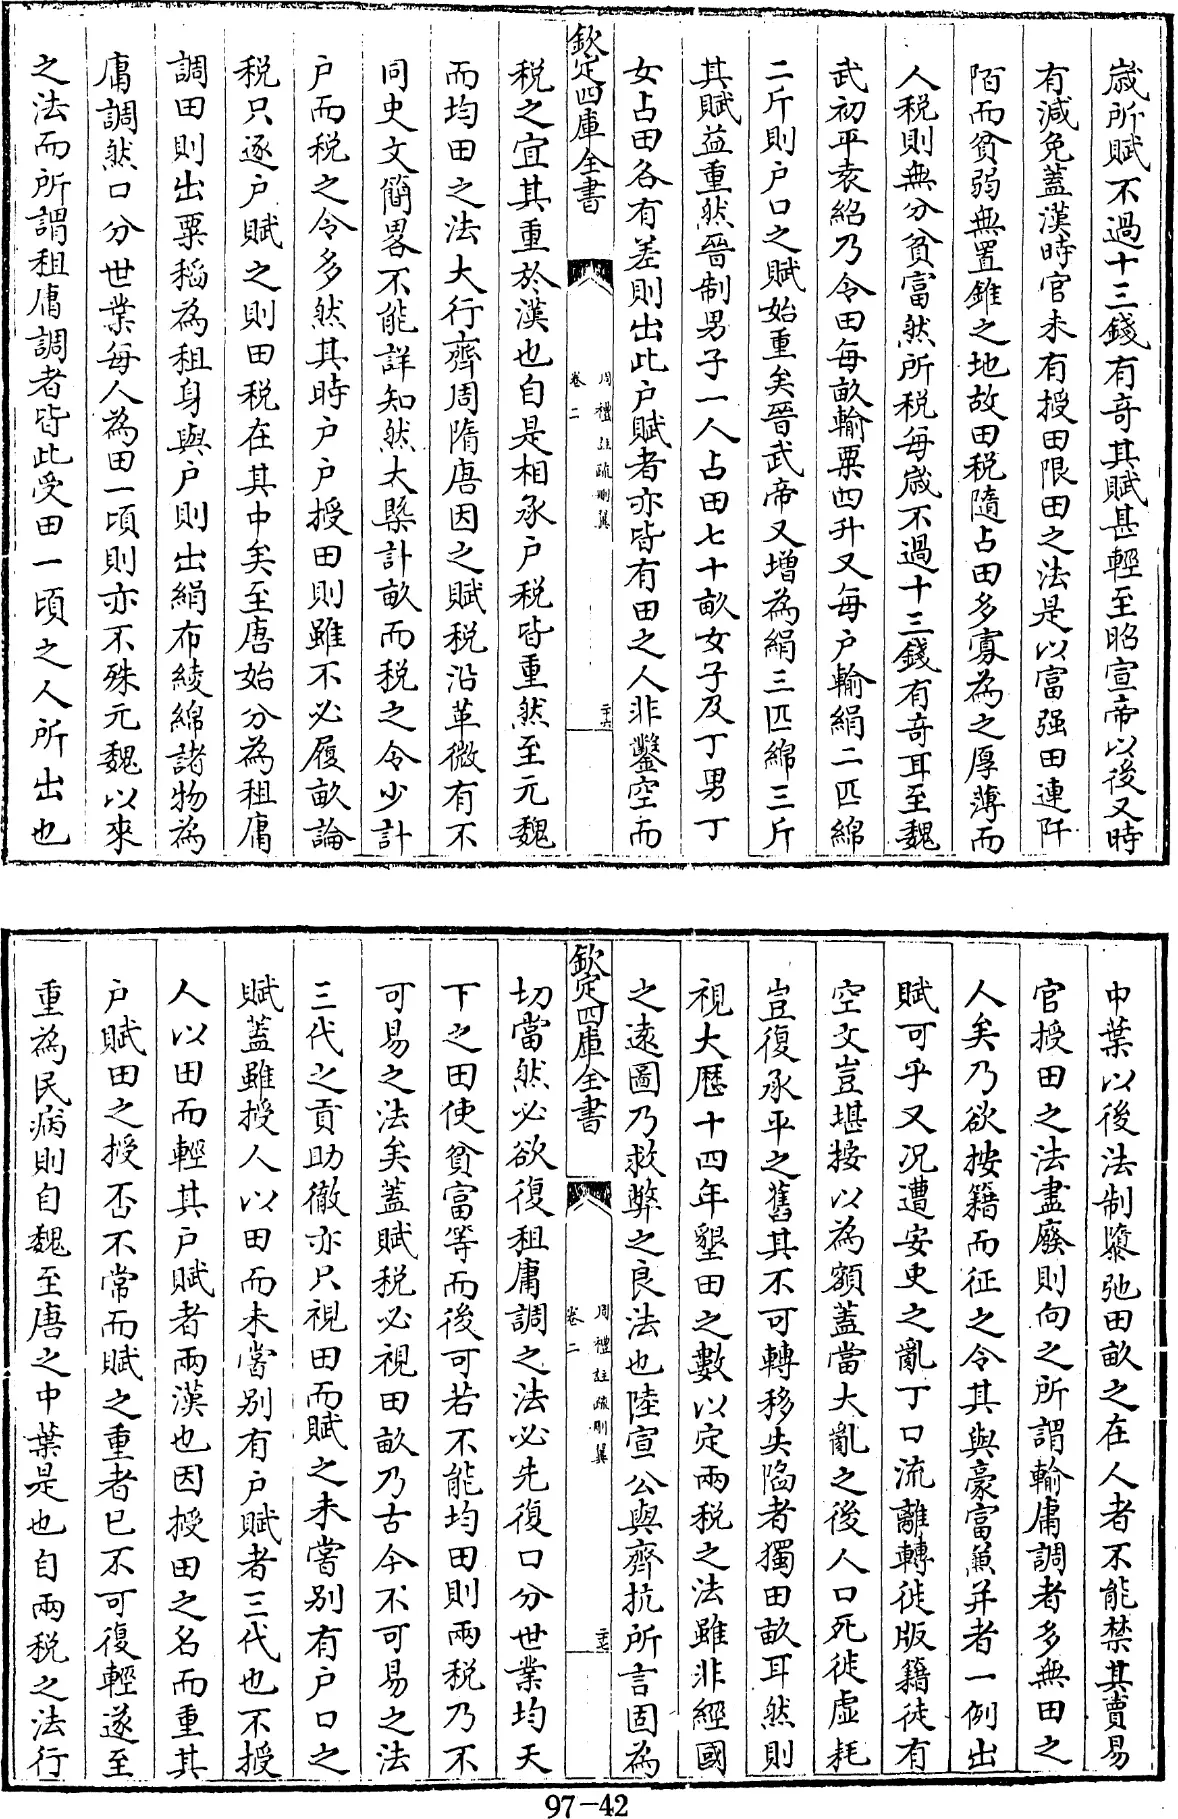 歲所賦不過十三錢有奇其賦甚輕至昭宣帝以後又時
有減免蓋漢時官未有授田限田之法是以富强田連阡
陌而貧弱無置錐之地故田税隨占田多寡為之厚薄而
人税則無分貧富然所税每歲不過十三錢有奇耳至魏
武初平袁紹乃令田每畝輸粟四升又每户輸絹二匹綿
二斤則户口之賦始重矣晉武帝又增為絹三匹綿三斤
其賦益重然晉制男子一人占田七十畝女子及丁男丁
女占田各有差則出此户賦者亦皆有田之人非鑿空而
欽定四庫全書
周禮註疏刪翼
卷二
二十六
税之宜其重於漢也自是相承户税皆重然至元魏
而均田之法大行齊周隋唐因之賦税沿革微有不
同史文簡畧不能詳知然大槩計畝而税之令少計
户而税之令多然其時户户授田則雖不必履畝論
税只逐户賦之則田税在其中矣至唐始分為租庸
調田則出粟稻為租身與户則出絹布綾綿諸物為
庸調然口分世業每人為田一頃則亦不殊元魏以來
之法而所謂租庸調者皆此受田一頃之人所出也
中葉以後法制隳弛田畝之在人者不能禁其賣易
官授田之法盡廢則向之所謂輸庸調者多無田之
人矣乃欲按籍而征之令其與豪富兼并者一例出
賦可乎又况遭安史之亂丁口流離轉徙版籍徒有
空文豈堪按以為額蓋當大亂之後人口死徙虚耗
豈復承平之舊其不可轉移失陷者獨田畝耳然則
視大歷十四年墾田之數以定兩税之法雖非經國
之遠圖乃救弊之良法也陸宣公與齊抗所言固為
欽定四庫全書
周禮註疏刪翼
卷二
二十七
切當然必欲復租庸調之法必先復口分世業均天
下之田使貧富等而後可若不能均田則兩税乃不
可易之法矣蓋賦税必視田畝乃古今不可易之法
三代之貢助徹亦只視田而賦之未嘗别有户口之
賦蓋雖授人以田而未嘗别有户賦者三代也不授
人以田而輕其户賦者兩漢也因授田之名而重其
户賦田之授否不常而賦之重者已不可復輕遂至
重為民病則自魏至唐之中葉是也自兩税之法行
97-42